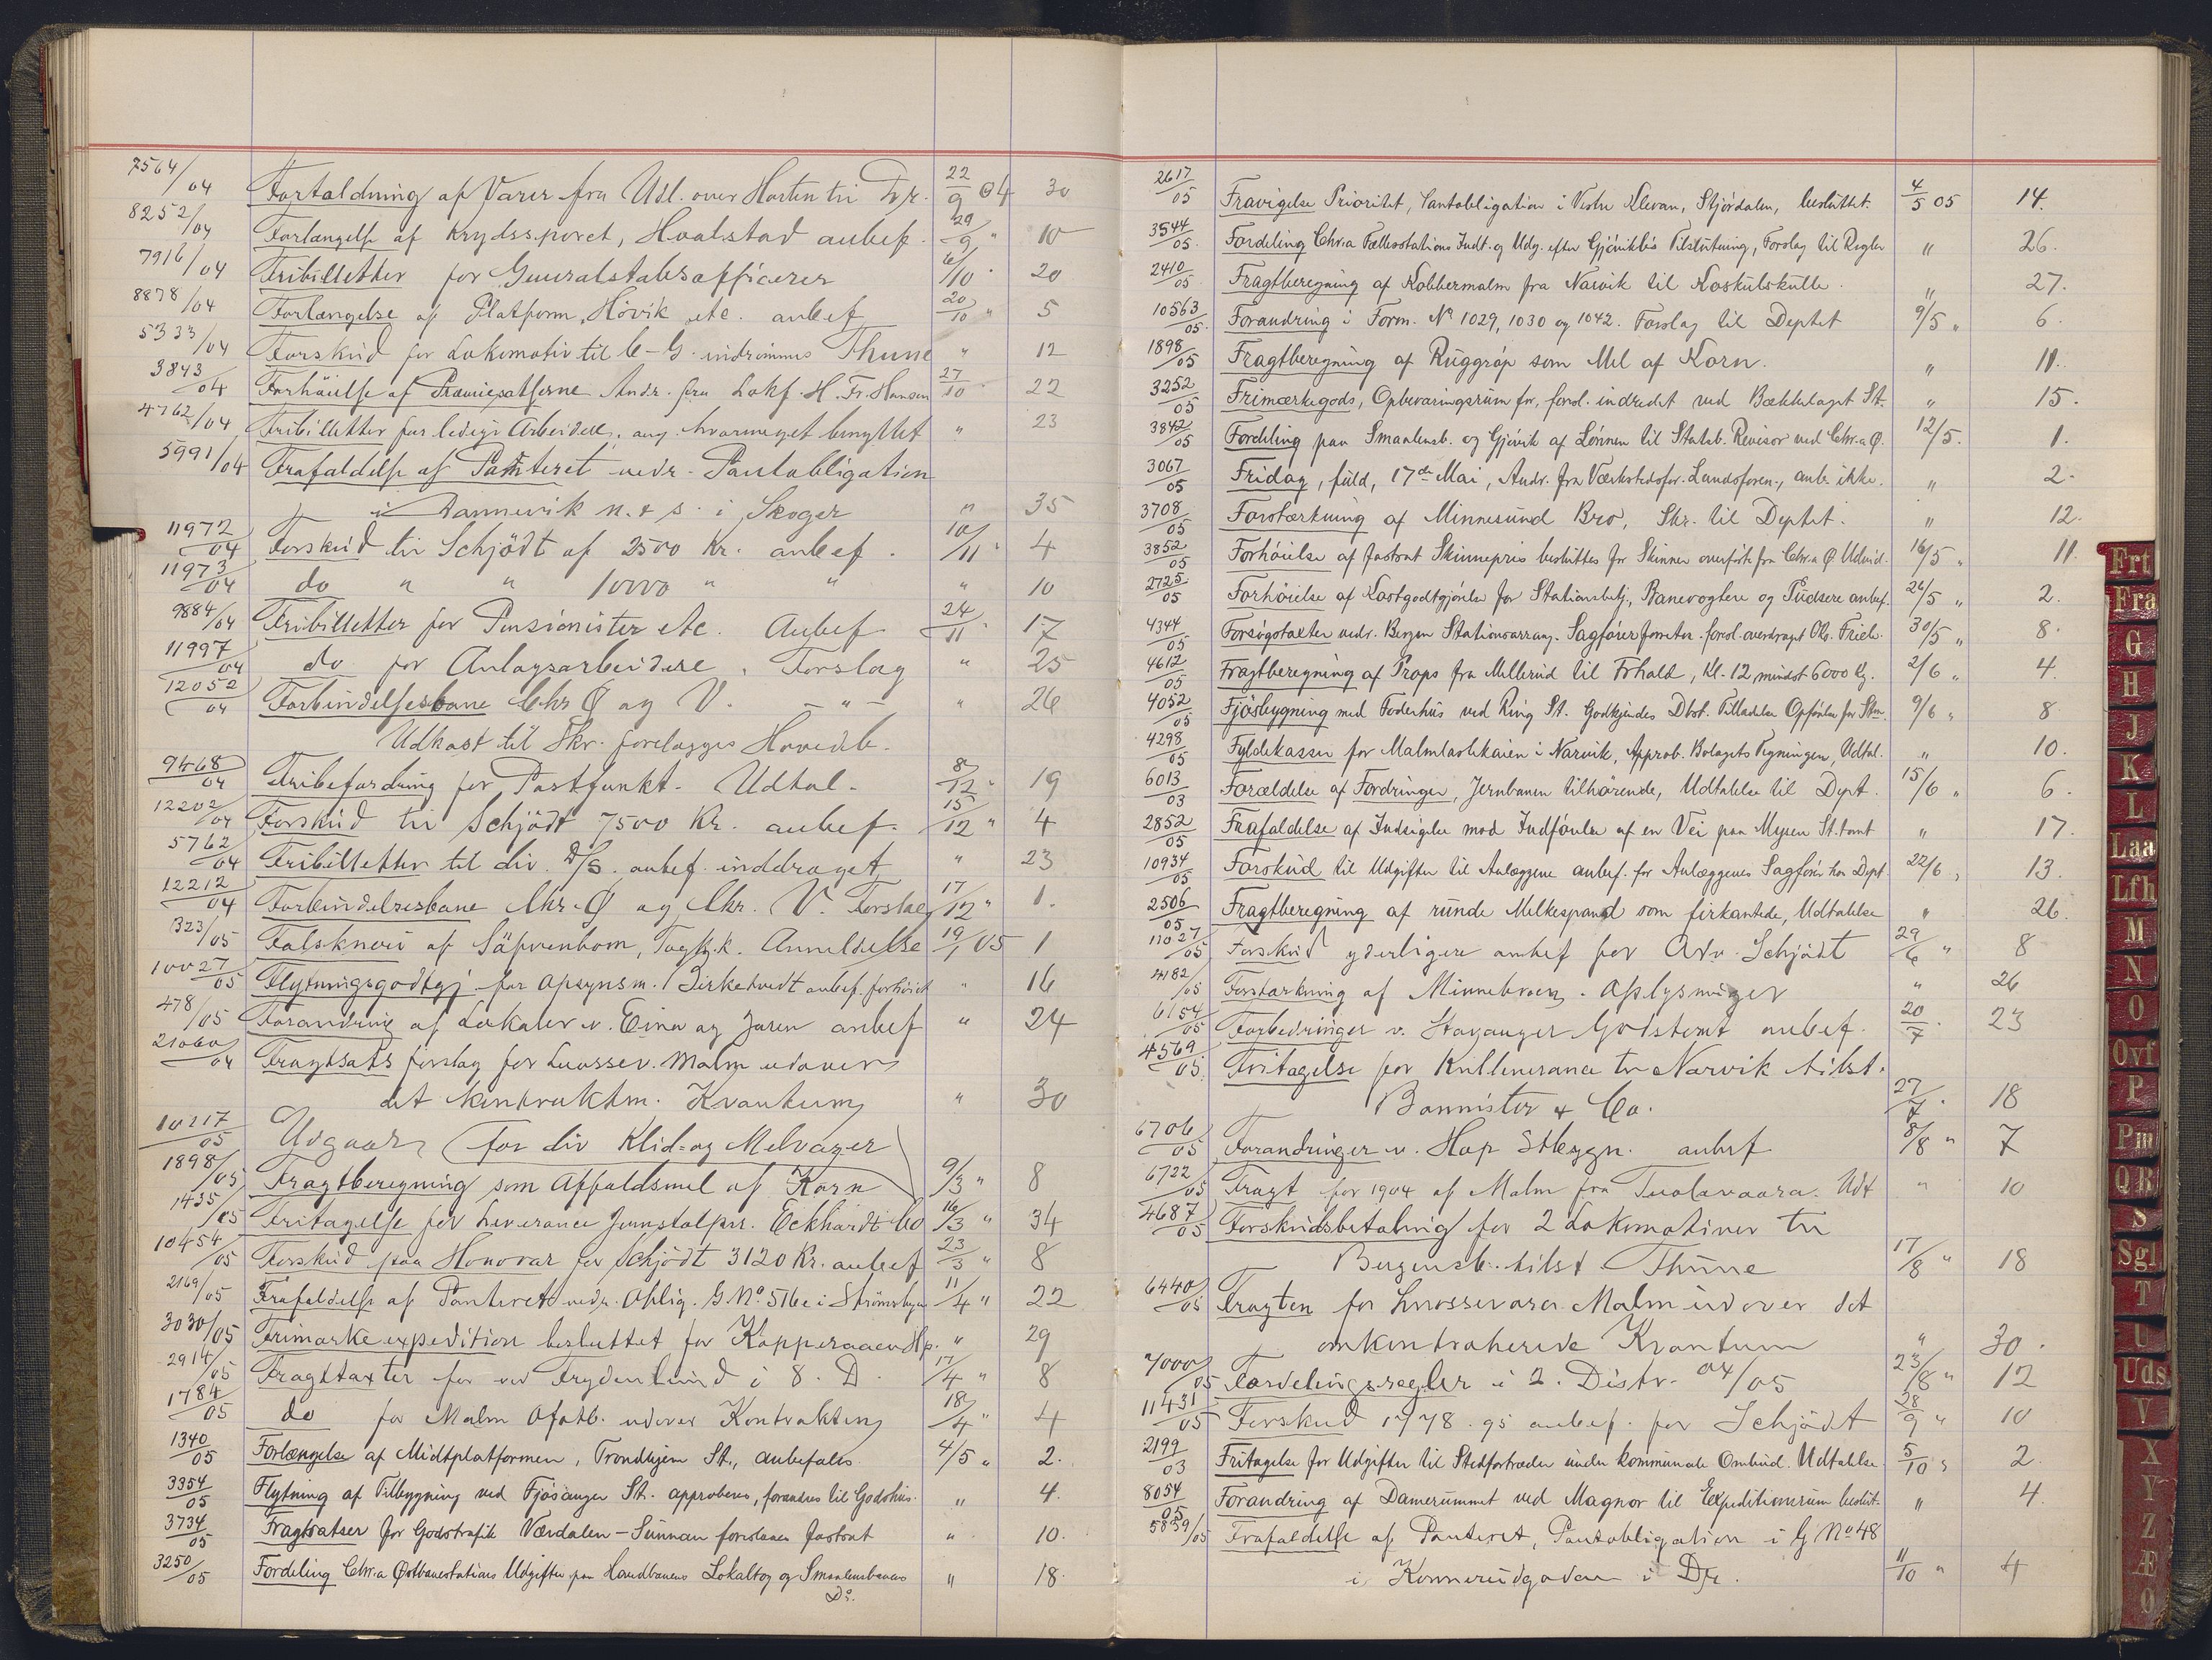 7564/04 Fortoldning af Varer fra Udl. over Horten til Dr. 22/9 04 30
8252/04 Forlængelse af Krydssporet, Hvalstad anbef. 29/9 " 10
7916/04 Fribilletter for Generalstabsofficerer 6/10 " 20
8878/04 Forlængelse af Platform, Hövik etc. anbef 20/10 " 5
5333/04 Forskud for Lokomotiv til C-G. indrömmes Thune " 12
3843/04 Forhöielse af Præmiesatserne Andr. fra Lokf. H. Fr. Hansen 27/10 " 22
4762/04 Fribilletter for ledige Arbeidere, ang. hvormeget benyttet " 23
5991/04 Frafaldelse af Panteret vedr. Pantobligation
i Rannevik n. & s. i Skoger " 35
11972/04 Forskud til Schjödt af 2500 Kr. anbef. 10/11 " 4
11973/04 do " " 10000 " " " 10
9884/04 Fribilletter for Pensionister etc. Anbef. 24/11 " 17
11997/04 do for Anlægsarbeidere, Forslag " 25
12052/04 Forbindelsesbane Chr. Ø og V. - " - " 26
Udkast til Skr. forelægges Hovedb.
9468/04 Fribefordring for Postfunkt. Udtal. 8/12 " 19
12202/04 Forskud til Schjödt 7500 Kr. anbef. 15/12 " 4
5762/04 Fribilletter til div. D/S. anbef. inddraget " 23
12212/04 Forbindelsesbane Chr. Ø og Chr. V. Forslag 17/12 " 1.
323/05 Falskneri af Togk.k. Anmeldelse 19/1 05 1
10027/05 Flytningsgodtgj. for Opsynsm. Birketvedt anbef. forhöiet " 16
478/05 Forandring af Lokaler v. Eina og Jaren anbef " 24
21060/04 Fragtsats forslag for Luossev. Malm udover
det kontraktm. Kvantum " 30
10217/05 Udgaar (for div Klid- og Melvarer
1898/05 Fragtberegning som Affaldsmel af Korn 9/3 " 8
1435/05 Fritagelse for Leverance Jernstolper. Eckhardt & Co 16/3 " 34
10454/05 Forskud paa Honorar for Schjödt 3120 Kr. anbef 23/3 " 8
2169/05 Frafaldelse af Panteret vedr. Oblig. G. No. 516e i Strömsbyen 11/4 " 22
3030/05 Frimærkeexpedition besluttet for Kopperaaen Hp. " 29
2914/05 Fragttaxter for ved Frydenlund i 8. D. 17/4 " 8
1784/05 do for Malm Ofotb. udover Kontrakten 18/4 " 4
1340/05 Forlængelse af Midtplatformen, Trondhjem St., anbefales 4/5 " 2.
3354/05 Flytning af Tilbygning ved Fjösanger St. approberes, forandres til Godshus. " 4.
3734/05 Fragtsatser for Godstrafik Værdalen - Sunnan foreslaaes fastsat " 10.
3250/05 Fordeling Chr.a Östbanestations Udgifter paa Hovedbanens Lokaltog og Smaalensbanens " 18.
Do.
2617/05 Fravigelse Prioritet, Pantobligation i Vestre Klevan, Stjördalen, besluttet. 4/5 05 14.
3544/05 Fordeling Chr.a Fællesstations Indt. og Udg. efter Gjövikb's Tilslutning, Forslag til Regler " 26.
2410/05 Fragtberegning af Kobbermalm fra Narvik til Koskulskulle. " 27.
10563/05 Forandring i Form. No 1029, 1030 og 1042. Forslag til Deptet 9/5 " 6.
1898/05 Fragtberegning af Ruggröp som Mel af Korn. " 11.
3252/05 Frimærkegods, Opbevaringsrum for, forel. indredet ved Bækkelaget St. " 15.
3842/05 Fordeling paa Smaalensb. og Gjövik af Lönnen til Statsb. Revisor ved Chr.a Ø. 12/5. 1.
3067/05 Fridag, fuld, 17de Mai, Andr. fra Værkstedsfor. Landsforen., anb. ikke. " 2.
3708/05 Forstærkning af Minnesund Bro, Skr. til Deptet. " 12.
3852/05 Forhöielse af fastsat Skinnepris besluttes for Skinner overförte fra Chr.a Ø. Udvid. 16/5 " 11.
2725/05 Forhöielse af Kostgodtgjörelse for Stationsbetj., Banevogtere og Pudsere anbef. 26/5 " 2.
4344/05 Forsögstaxter vedr. Bergen Stationsarrang. Sagförerforretn. forel. overdraget O.R. Friele. 30/5 " 8.
4612/05 Fragtberegning af Props fra Mellerud til Frhald, Kl. 12, mindst 6000 kg. 2/6 " 4.
4052/05 Fjösbygning med Foderhus ved Ring St. Godkjendes Dbst. Tilladelse Opförelse for Stm. 9/6 " 8.
4298/05 Fyldekasser for Malmlastekaien i Narvik, Approb. Bolagets Tegninger, Udtal. " 10.
6013/03 Forældelse af Fordringer, Jernbanen tilhörende, Udtalelse til Dept. 15/6 " 6.
2852/05 Frafaldelse af Indsigelse mod Indförelse af en Vei paa Mysen St.tomt " 17.
10934/05 Forskud til Udgifter til Anlæggene anbef. for Anlæggenes Sagförer hos Dept. 22/6 " 13.
2506/05 Fragtberegning af runde Melkespand som firkantede, Udtalelse " 26.
11027/05 Forskud yderligere anbef for Adv. Schjödt 29/6 " 8
4182/05 Forstærkning af Minnebroen. Oplysninger " 26
6154/05 Forbedringer v. Stavanger Godstomt anbef. 20/7 " 23
4569/05 Fritagelse for Kulleverance til Narvik tilst.
Bannister & Co. 27/7 " 18
6706/05 Forandringer v. Hop Stbygn. anbef 8/8 " 7
6722/05 Fragt for 1904 af Malm fra Tuolavaara. Udt " 10
4687/05 Forskudsbetaling for 2 Lokomotiver til
Bergensb. tilst Thune 17/8 " 18
6440/05 Fragten for Luossevara Malm udover det
omkontraherede Kvantum " 30.
7000/05 Fordelingsregler i 2. Distr. 04/05 23/8 " 12
11431/05 Forskud 1778.95 anbef. for Schjödt 28/9 " 10
2199/03 Fritagelse for Udgifter til Stedfortræder under kommunale Ombud. Udtalelse. 5/10 " 2.
8054/05 Forandring af Damerummet ved Magnor til Expeditionsrum beslut. " 4.
5859/05 Frafaldelse af Panteret, Pantobligation i G No 48
i Konnerudgaden i Dr. 11/10 " 4
Frt
Fra
G
H
J
K
L
Laa
Lfh
M
N
O
Ovf
P
Pm
QR
S
Sgl
T
U
Uds
V
X
Y
Z
Æ
Ø